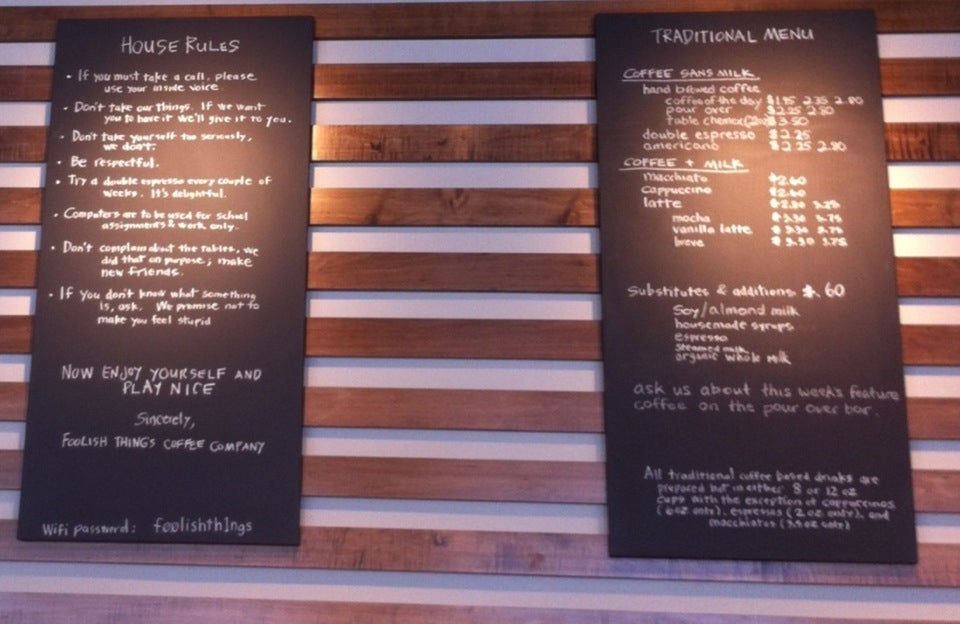 HOUSE RULES
• If you must take a call, please
use your inside voice.
• Don't take our things. If we want
you to have it we'll give it to you.
• Don't take yourself too seriously,
we don't.
• Be respectful.
• Try a double espresso every couple of
weeks. It's delightful.
• Computers are to be used for school
assignments & work only.
• Don't complain about the tables, we
did that on purpose; make
new friends.
• If you don't know what something
is, ask. We promise not to
make you feel stupid
NOW ENJOY YOURSELF AND
PLAY NICE
Sincerely,
FOOLISH THINGS COFFEE COMPANY
Wifi password: foolishthings
TRADITIONAL MENU
COFFEE SANS MILK
hand brewed coffee
coffee of the day $1.95 2.35 2.80
pour over $2.25 2.80
table chemex $3.50
double espresso $2.25
americano $2.25 2.80
COFFEE + MILK
macchiato $2.60
cappuccino $2.60
latte
mocha
vanilla latte
breve
Substitutes & additions .60
Soy/almond milk
housemade syrups
espresso
steamed milk
organic whole milk
ask us about this week's feature
coffee on the pour over bar.
All traditional coffee based drinks are
prepared but in either 8 or 12 oz
cups with the exception of cappuccinos
(6 oz only), espressos (2 oz only), and
macchiatos (3.5 oz only)